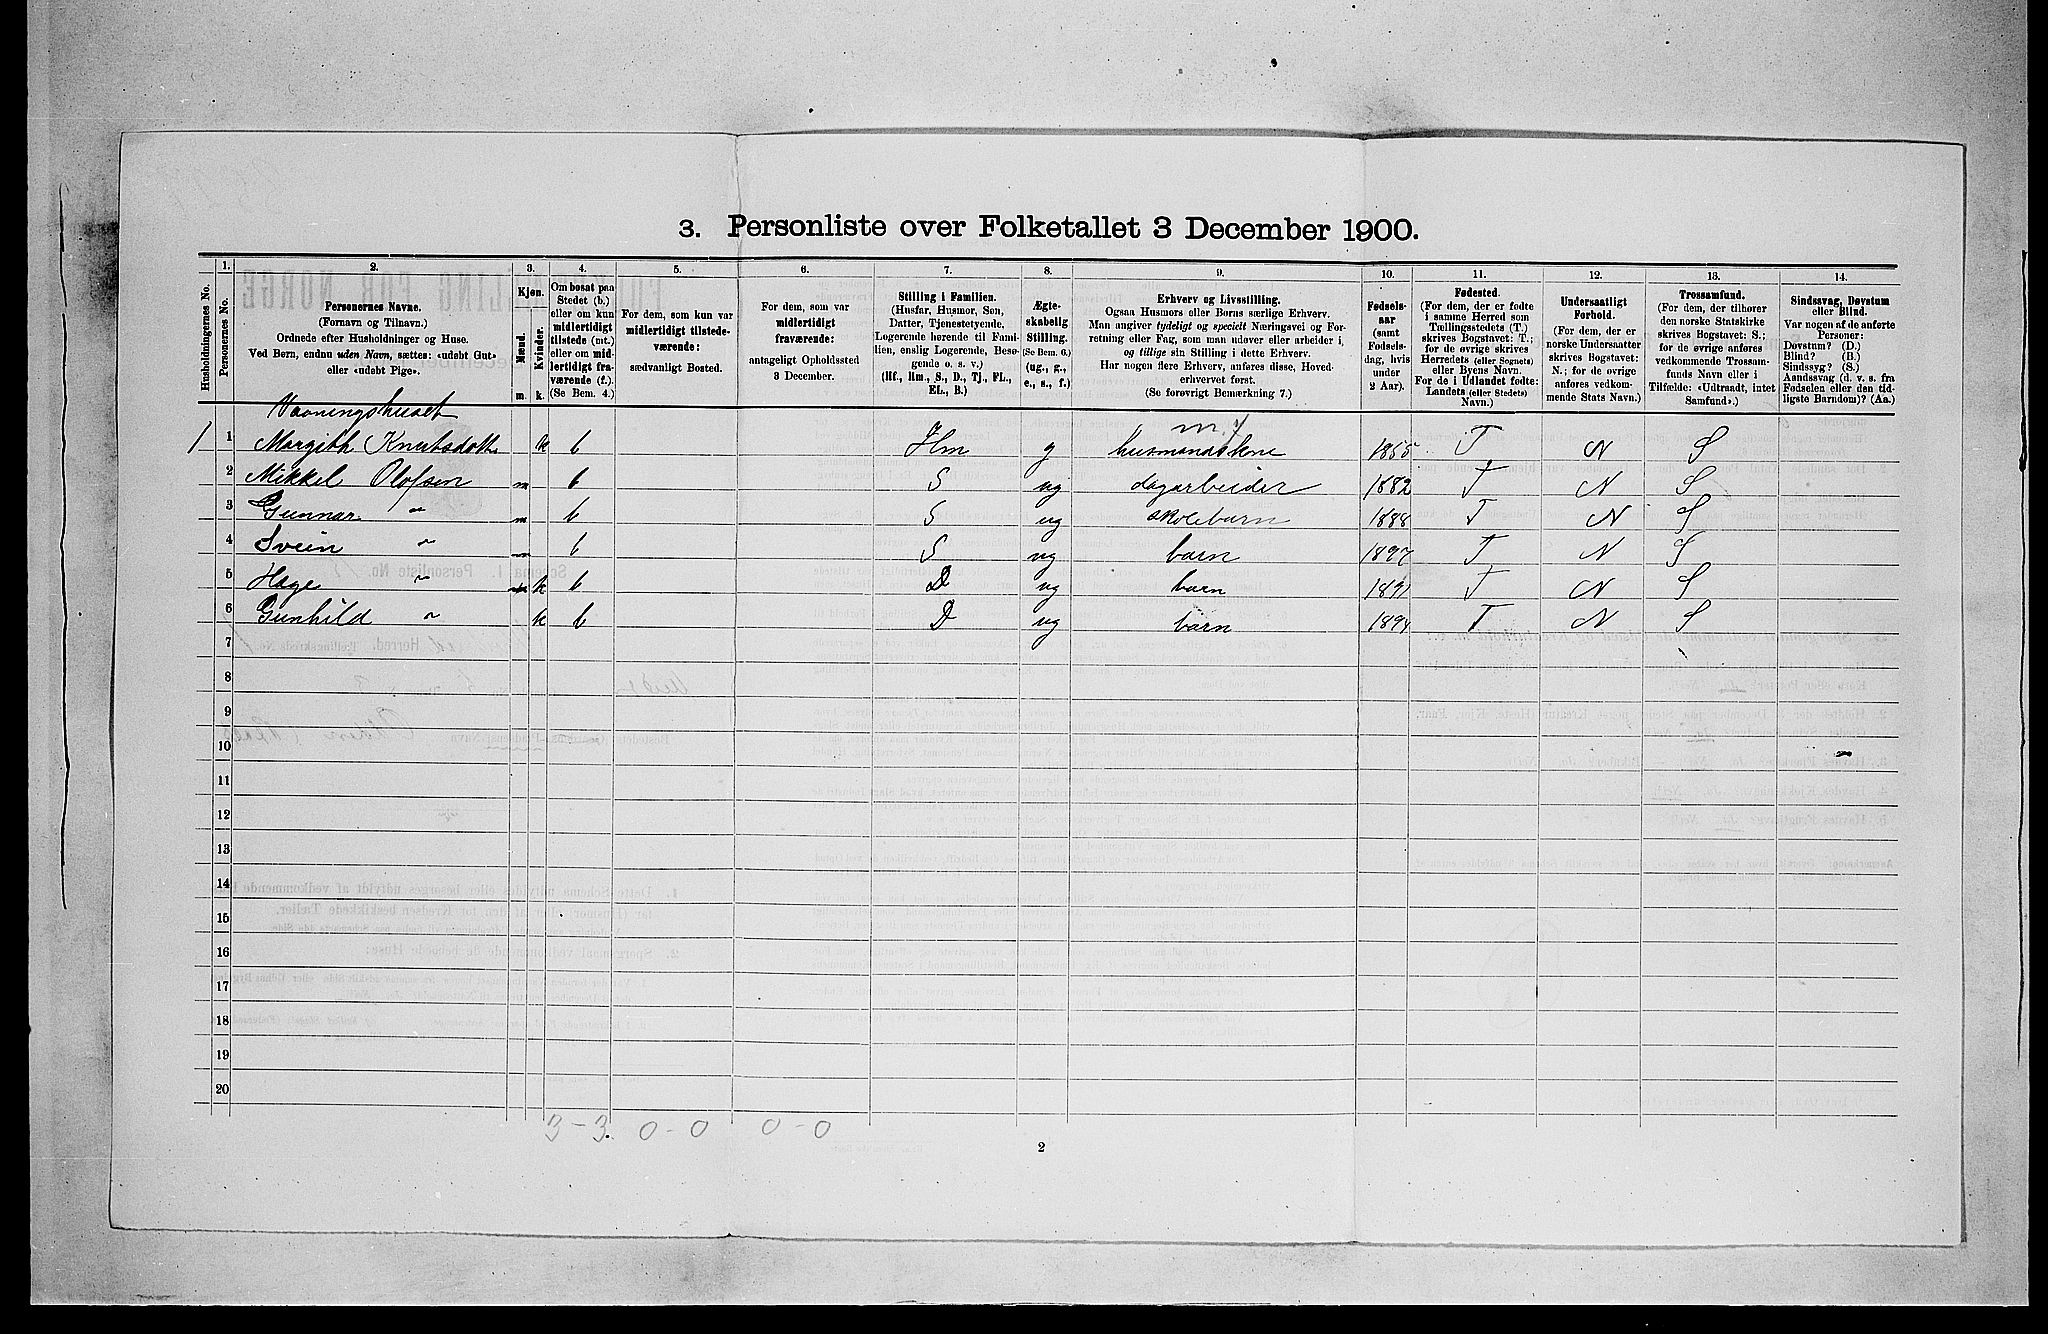 3. Personliste over Folketallet 3 December 1900.
1. 2. 3. 4. 5. 6. 7. 8. 9. 10. 11. 12. 13. 14.
Husholdningernes No.
Personernes No.
Personernes Navne.
(Fornavn og Tilnavn.)
Ordnede efter Husholdninger og Huse.
Ved Børn, endnu uden Navn, sættes: «udøbt Gut»
eller «udøbt Pige».
Kjøn.
Mænd.
Kvinder.
m. k.
Om bosat paa
Stedet (b.)
eller om kun
midlertidigt
tilstede (mt.)
eller om mid-
lertidigt fra-
værende (f.).
(Se Bem. 4.)
For dem, som kun var
midlertidigt tilstede-
værende:
sædvanligt Bosted.
For dem, som var
midlertidigt
fraværende:
antageligt Opholdssted
3 December.
Stilling i Familien.
(Husfar, Husmor, Søn,
Datter, Tjenestetyende,
Logerende hørende til Fami-
lien, enslig Logerende, Besø-
gende o. s. v.)
(Hf., Hm., S., D., Tj., FL.,
EL., B.)
Ægte-
skabelig
Stilling.
(Se Bem. 6.)
(ug., g.,
e., s., f.)
Erhverv og Livsstilling.
Ogsaa Husmors eller Børns særlige Erhverv.
Man angiver tydeligt og specielt Næringsvei og For-
retning eller Fag, som man udøver eller arbeider i,
og tillige sin Stilling i dette Erhverv.
Har nogen flere Erhverv, anføres disse, Hoved-
erhvervet først.
(Se forøvrigt Bemærkning 7.)
Fødsels-
aar
(samt
Fødsels-
dag, hvis
under
2 Aar).
Fødested.
(For dem, der er fødte
i samme Herred som
Tællingsstedets (T.)
skrives Bogstavet: T.;
for de øvrige skrives
Herredets (eller Sognets)
eller Byens Navn.
For de i Udlandet fødte:
Landets (eller Stedets)
Navn.)
Undersaatligt
Forhold.
(For dem, der er
norske Undersaatter
skrives Bogstavet:
N.; for de øvrige
anføres vedkom-
mende Stats Navn.)
Trossamfund.
(For dem, der tilhører
den norske Statskirke
skrives Bogstavet: S.;
for de øvrige anføres
vedkommende Trossam-
funds Navn eller i
Tilfælde: «Udtraadt, intet
Samfund».)
Sindssvag, Døvstum
eller Blind.
Var nogen af de anførte
Personer:
Døvstum? (D.)
Blind? (B.)
Sindssyg? (S.)
Aandssvag (d. v. s. fra
Fødselen eller den tid-
ligste Barndom)? (Aa.)
Vaaningshuset
1 1 Margith Knutsdatte k b Hm g husmandskone 1855 T N S
2 Mikkel Olofsen m b S ug dagarbeider 1882 T N S
3 Gunnar " m b S ug skolebarn 1888 T N S
4 Svein " m b S ug barn 1897 T N S
5 Hæge " k b D ug barn 1891 T N S
6 Gunhild " k b D ug barn 1894 T N S
7
8
9
10
11
12
13
14
15
16
17
18
19
20
3-3. 0-0 0-0
2